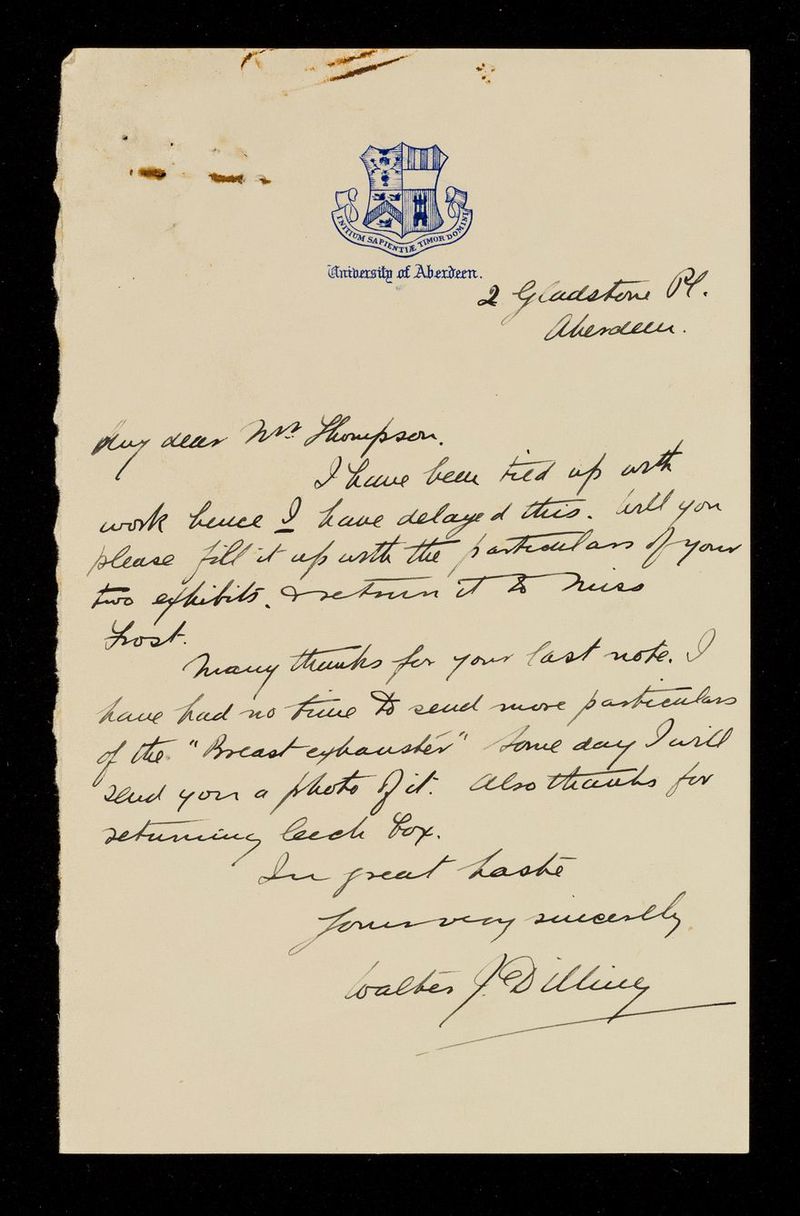 INITIUM SAPIENTIÆ TIMOR DOMINI
University of Aberdeen.
2 Gladstone Pl.
Aberdeen.
My dear Mr. Thompson.
I have been tied up with
work hence I have delayed this. Will you
please fill it up with the particulars of your
two exhibits. & return it to Miss
Frost.
Many thanks for your last note. I
have had no time to send more particulars
of the "Breast exhauster" Some day I will
send you a photo of it. Also thanks for
returning leech box.
In great haste
Yours very sincerely
Walter J. Dilling